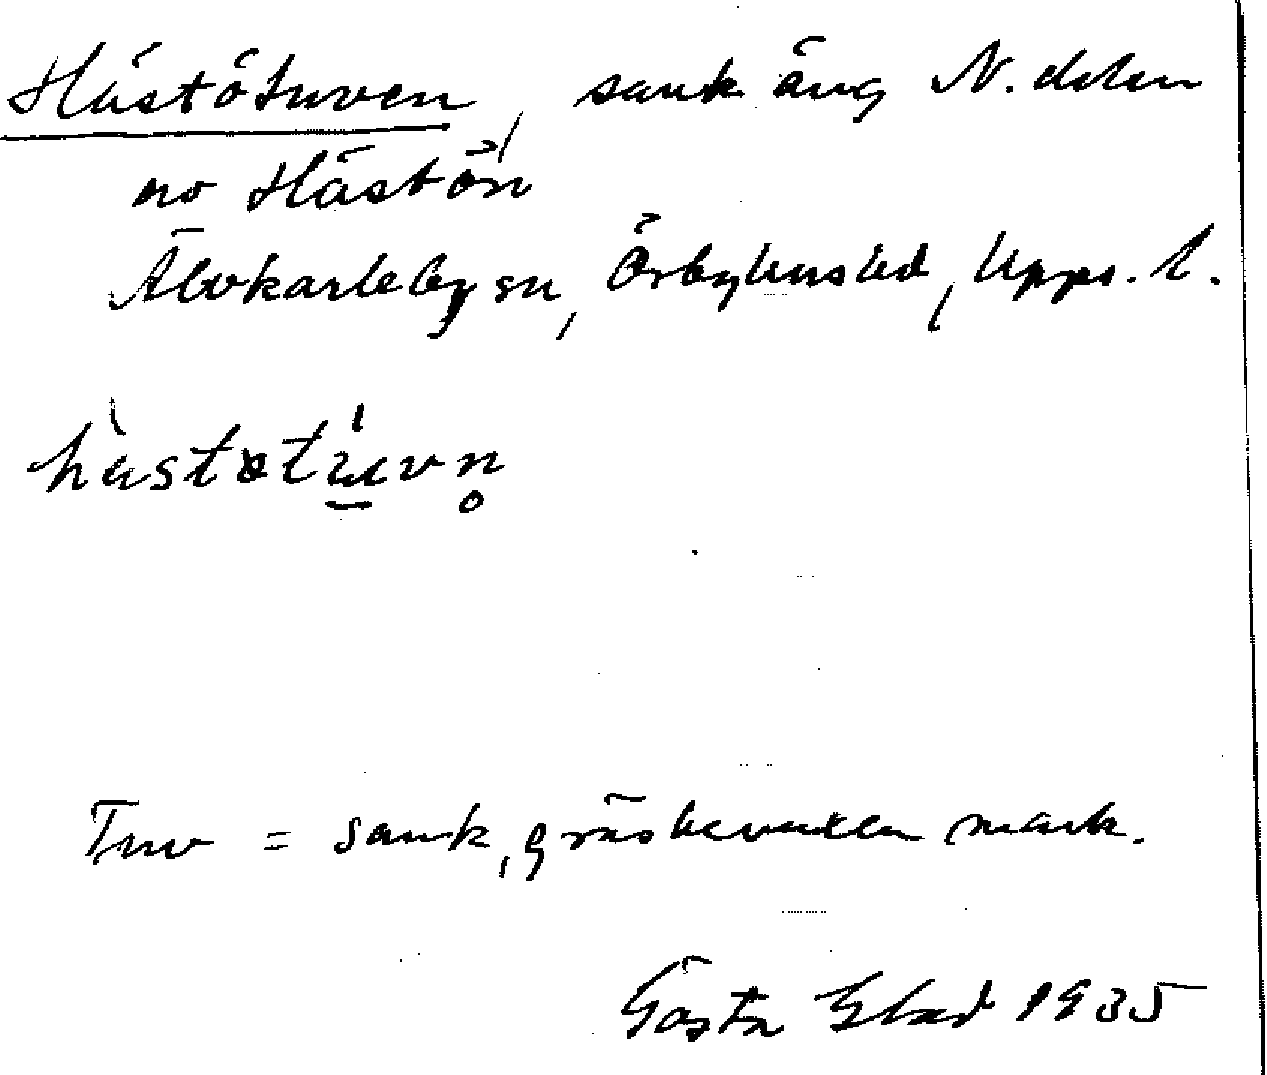 Hästötuven, sank äng N. delen
av Hästön
Älvkarleby sn, Örbyhus hd, Upps. l.
hàstøtúvn̥
Tuv = sank, gräsbevuxen mark.
Gösta Elad 1935